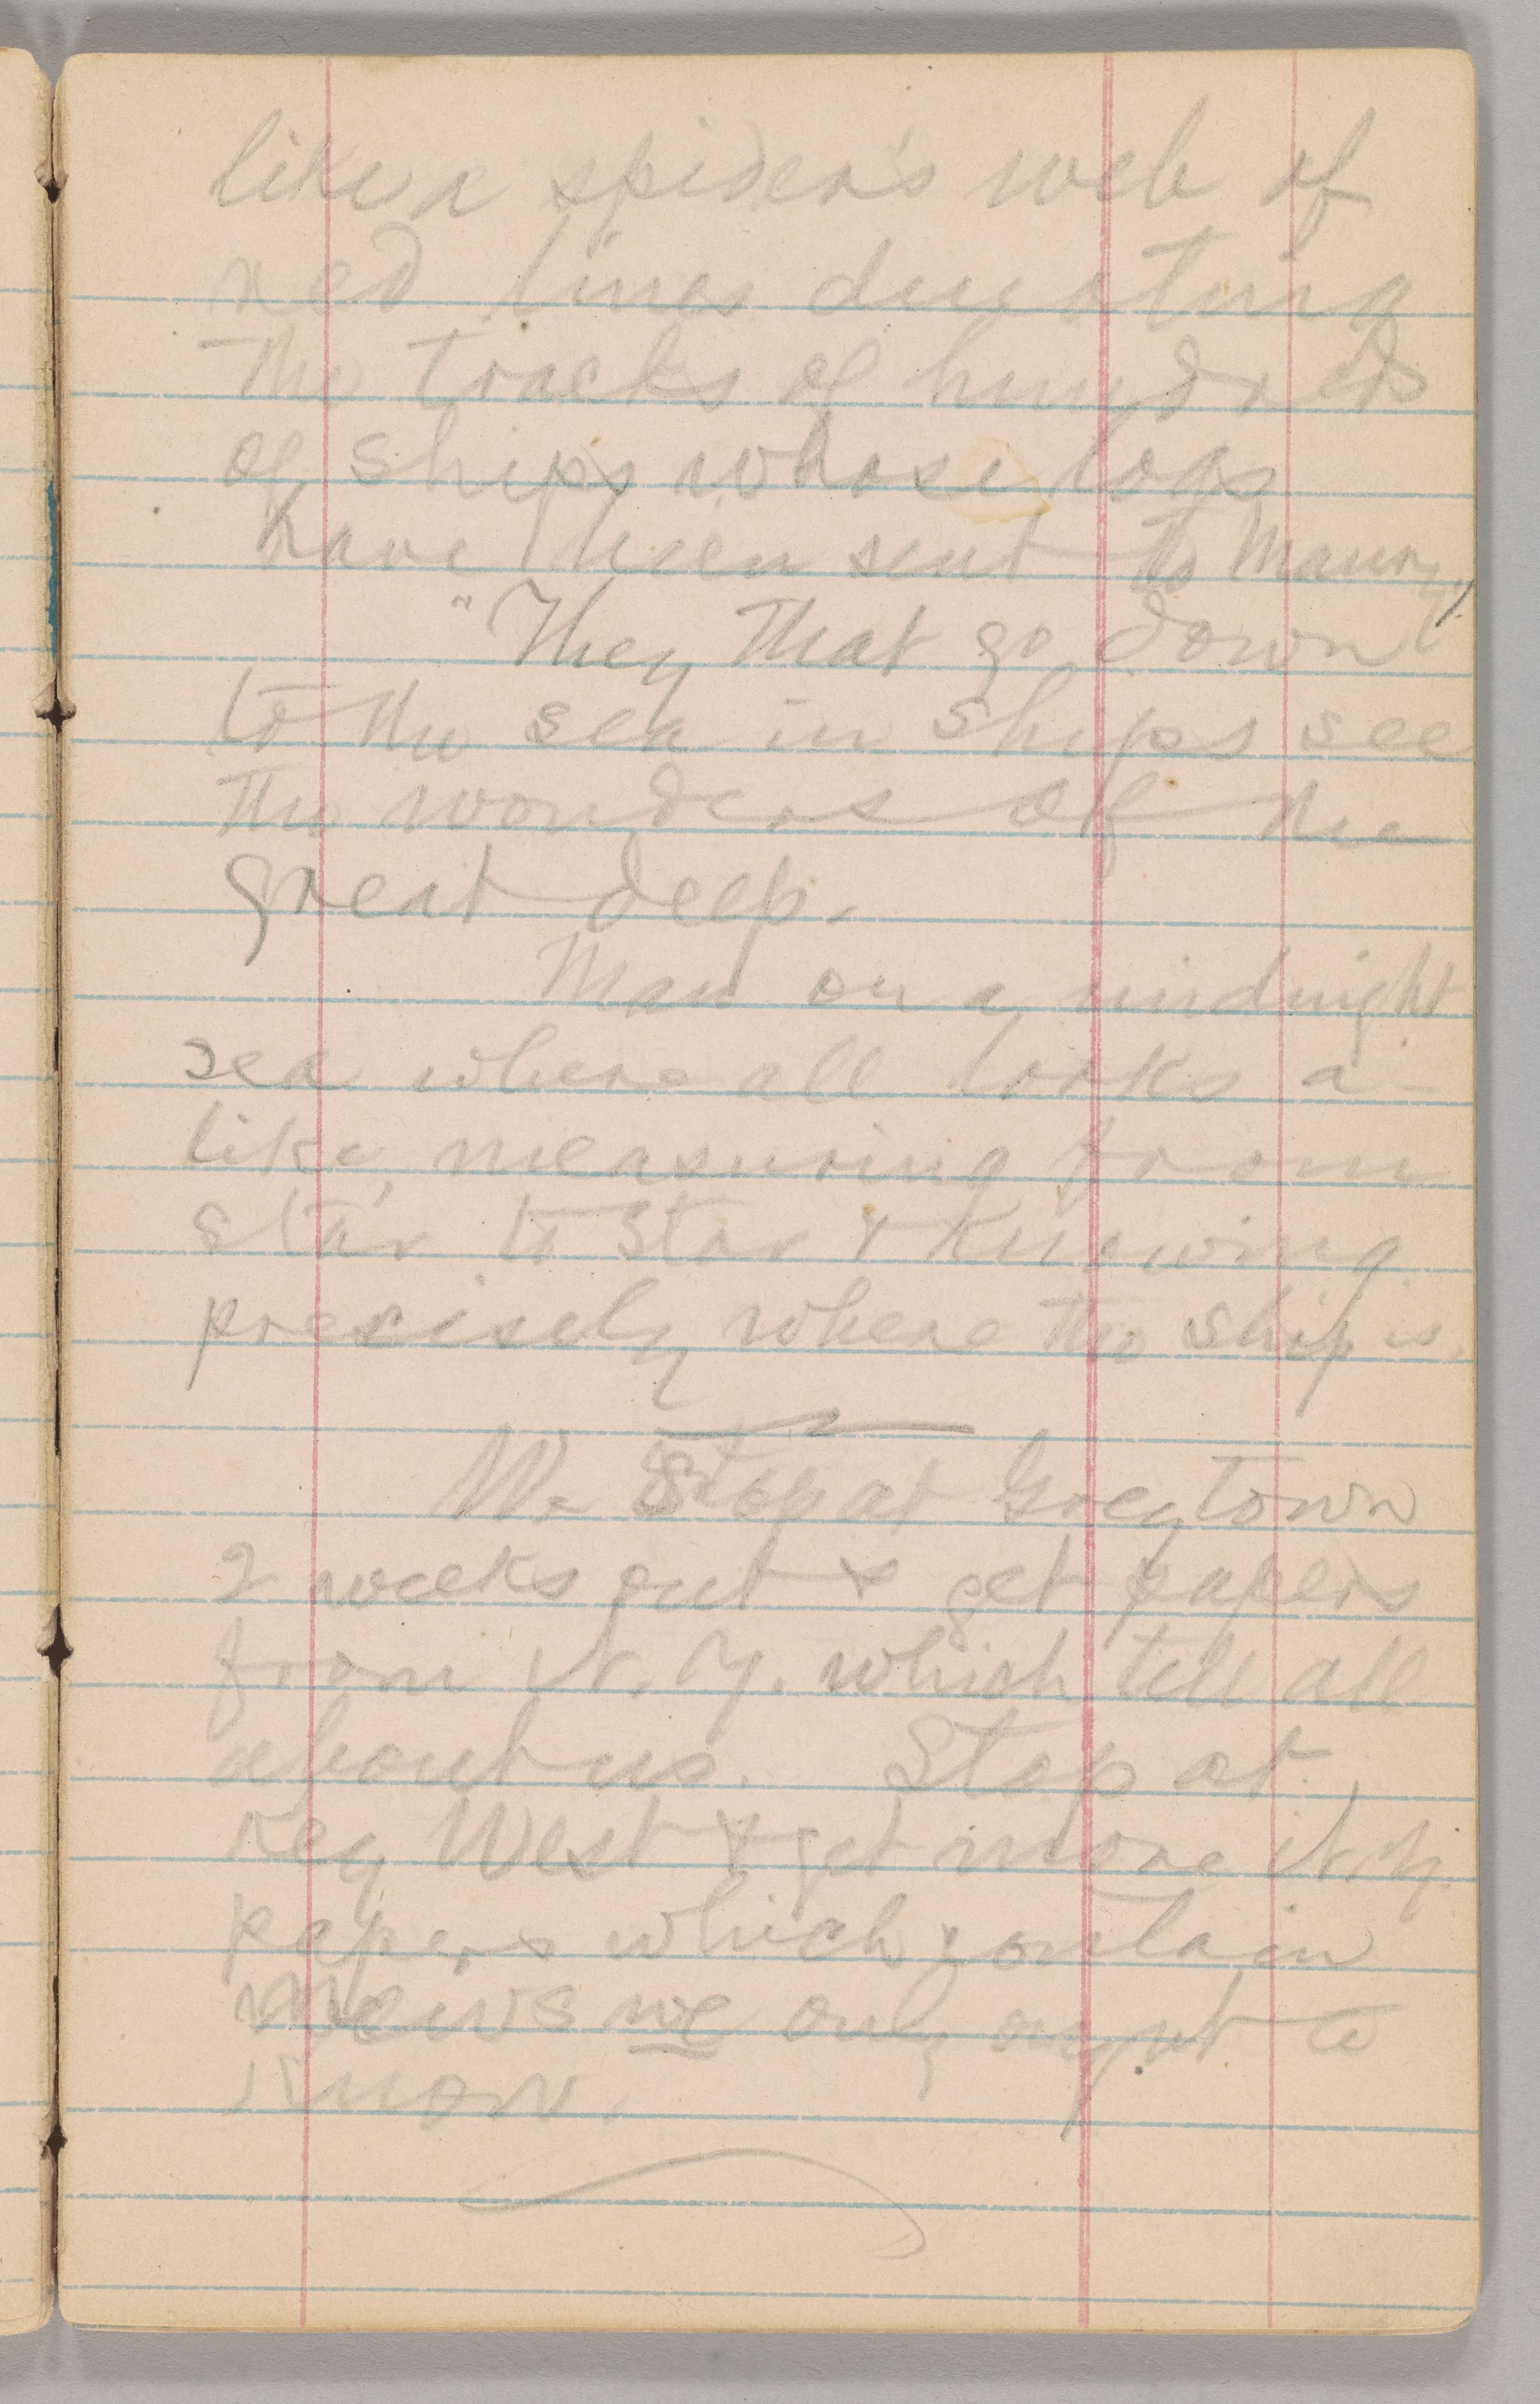 like a spider's web of
red lines denoting
the tracks of hundreds
of ships whose logs
have been sent to Maury.
"They that go down
to the sea in ships see
the wonders of the
great deep.
Man on a midnight
sea where all looks a-
like, measuring from
star to star & knowing
precisely where the ship is.
We Stop at Greytown
2 weeks out & get papers
from N. Y. which tell all
about us. Stop at
Key West & get more N. Y.
papers which contain
news we only ought to
know.